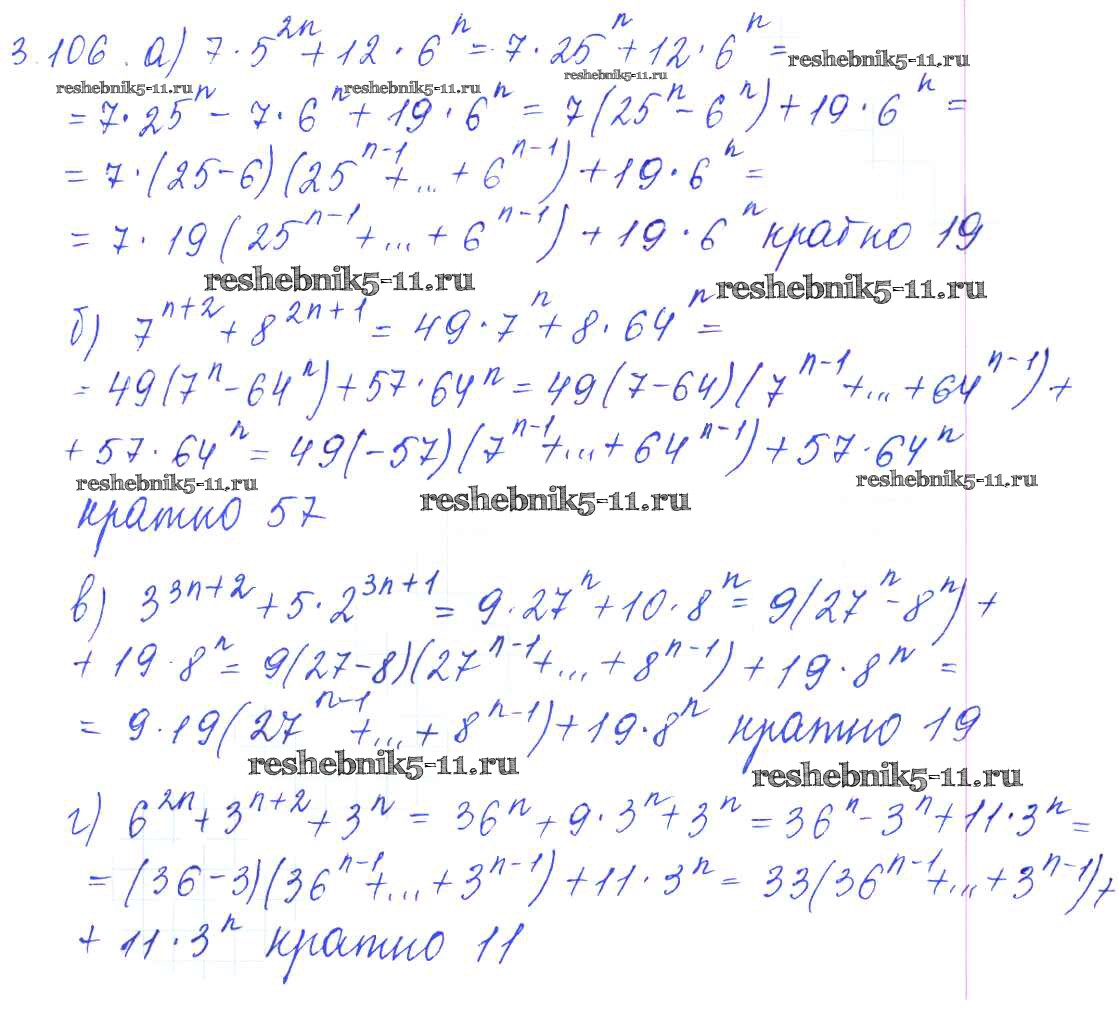 3.106. а) 7·5^{2n} + 12·6^n = 7·25^n + 12·6^n =
reshebnik5-11.ru
reshebnik5-11.ru reshebnik5-11.ru reshebnik5-11.ru
= 7·25^n - 7·6^n + 19·6^n = 7(25^n - 6^n) + 19·6^n =
= 7·(25-6)(25^{n-1} + ... + 6^{n-1}) + 19·6^n =
= 7·19(25^{n-1} + ... + 6^{n-1}) + 19·6^n кратно 19
reshebnik5-11.ru reshebnik5-11.ru
б) 7^{n+2} + 8^{2n+1} = 49·7^n + 8·64^n =
= 49(7^n - 64^n) + 57·64^n = 49(7-64)(7^{n-1} + ... + 64^{n-1}) +
+ 57·64^n = 49(-57)(7^{n-1} + ... + 64^{n-1}) + 57·64^n
reshebnik5-11.ru reshebnik5-11.ru reshebnik5-11.ru
кратно 57
в) 3^{3n+2} + 5·2^{3n+1} = 9·27^n + 10·8^n = 9(27^n - 8^n) +
+ 19·8^n = 9(27-8)(27^{n-1} + ... + 8^{n-1}) + 19·8^n =
= 9·19(27^{n-1} + ... + 8^{n-1}) + 19·8^n кратно 19
reshebnik5-11.ru reshebnik5-11.ru
г) 6^{2n} + 3^{n+2} + 3^n = 36^n + 9·3^n + 3^n = 36^n - 3^n + 11·3^n =
= (36-3)(36^{n-1} + ... + 3^{n-1}) + 11·3^n = 33(36^{n-1} + ... + 3^{n-1}) +
+ 11·3^n кратно 11